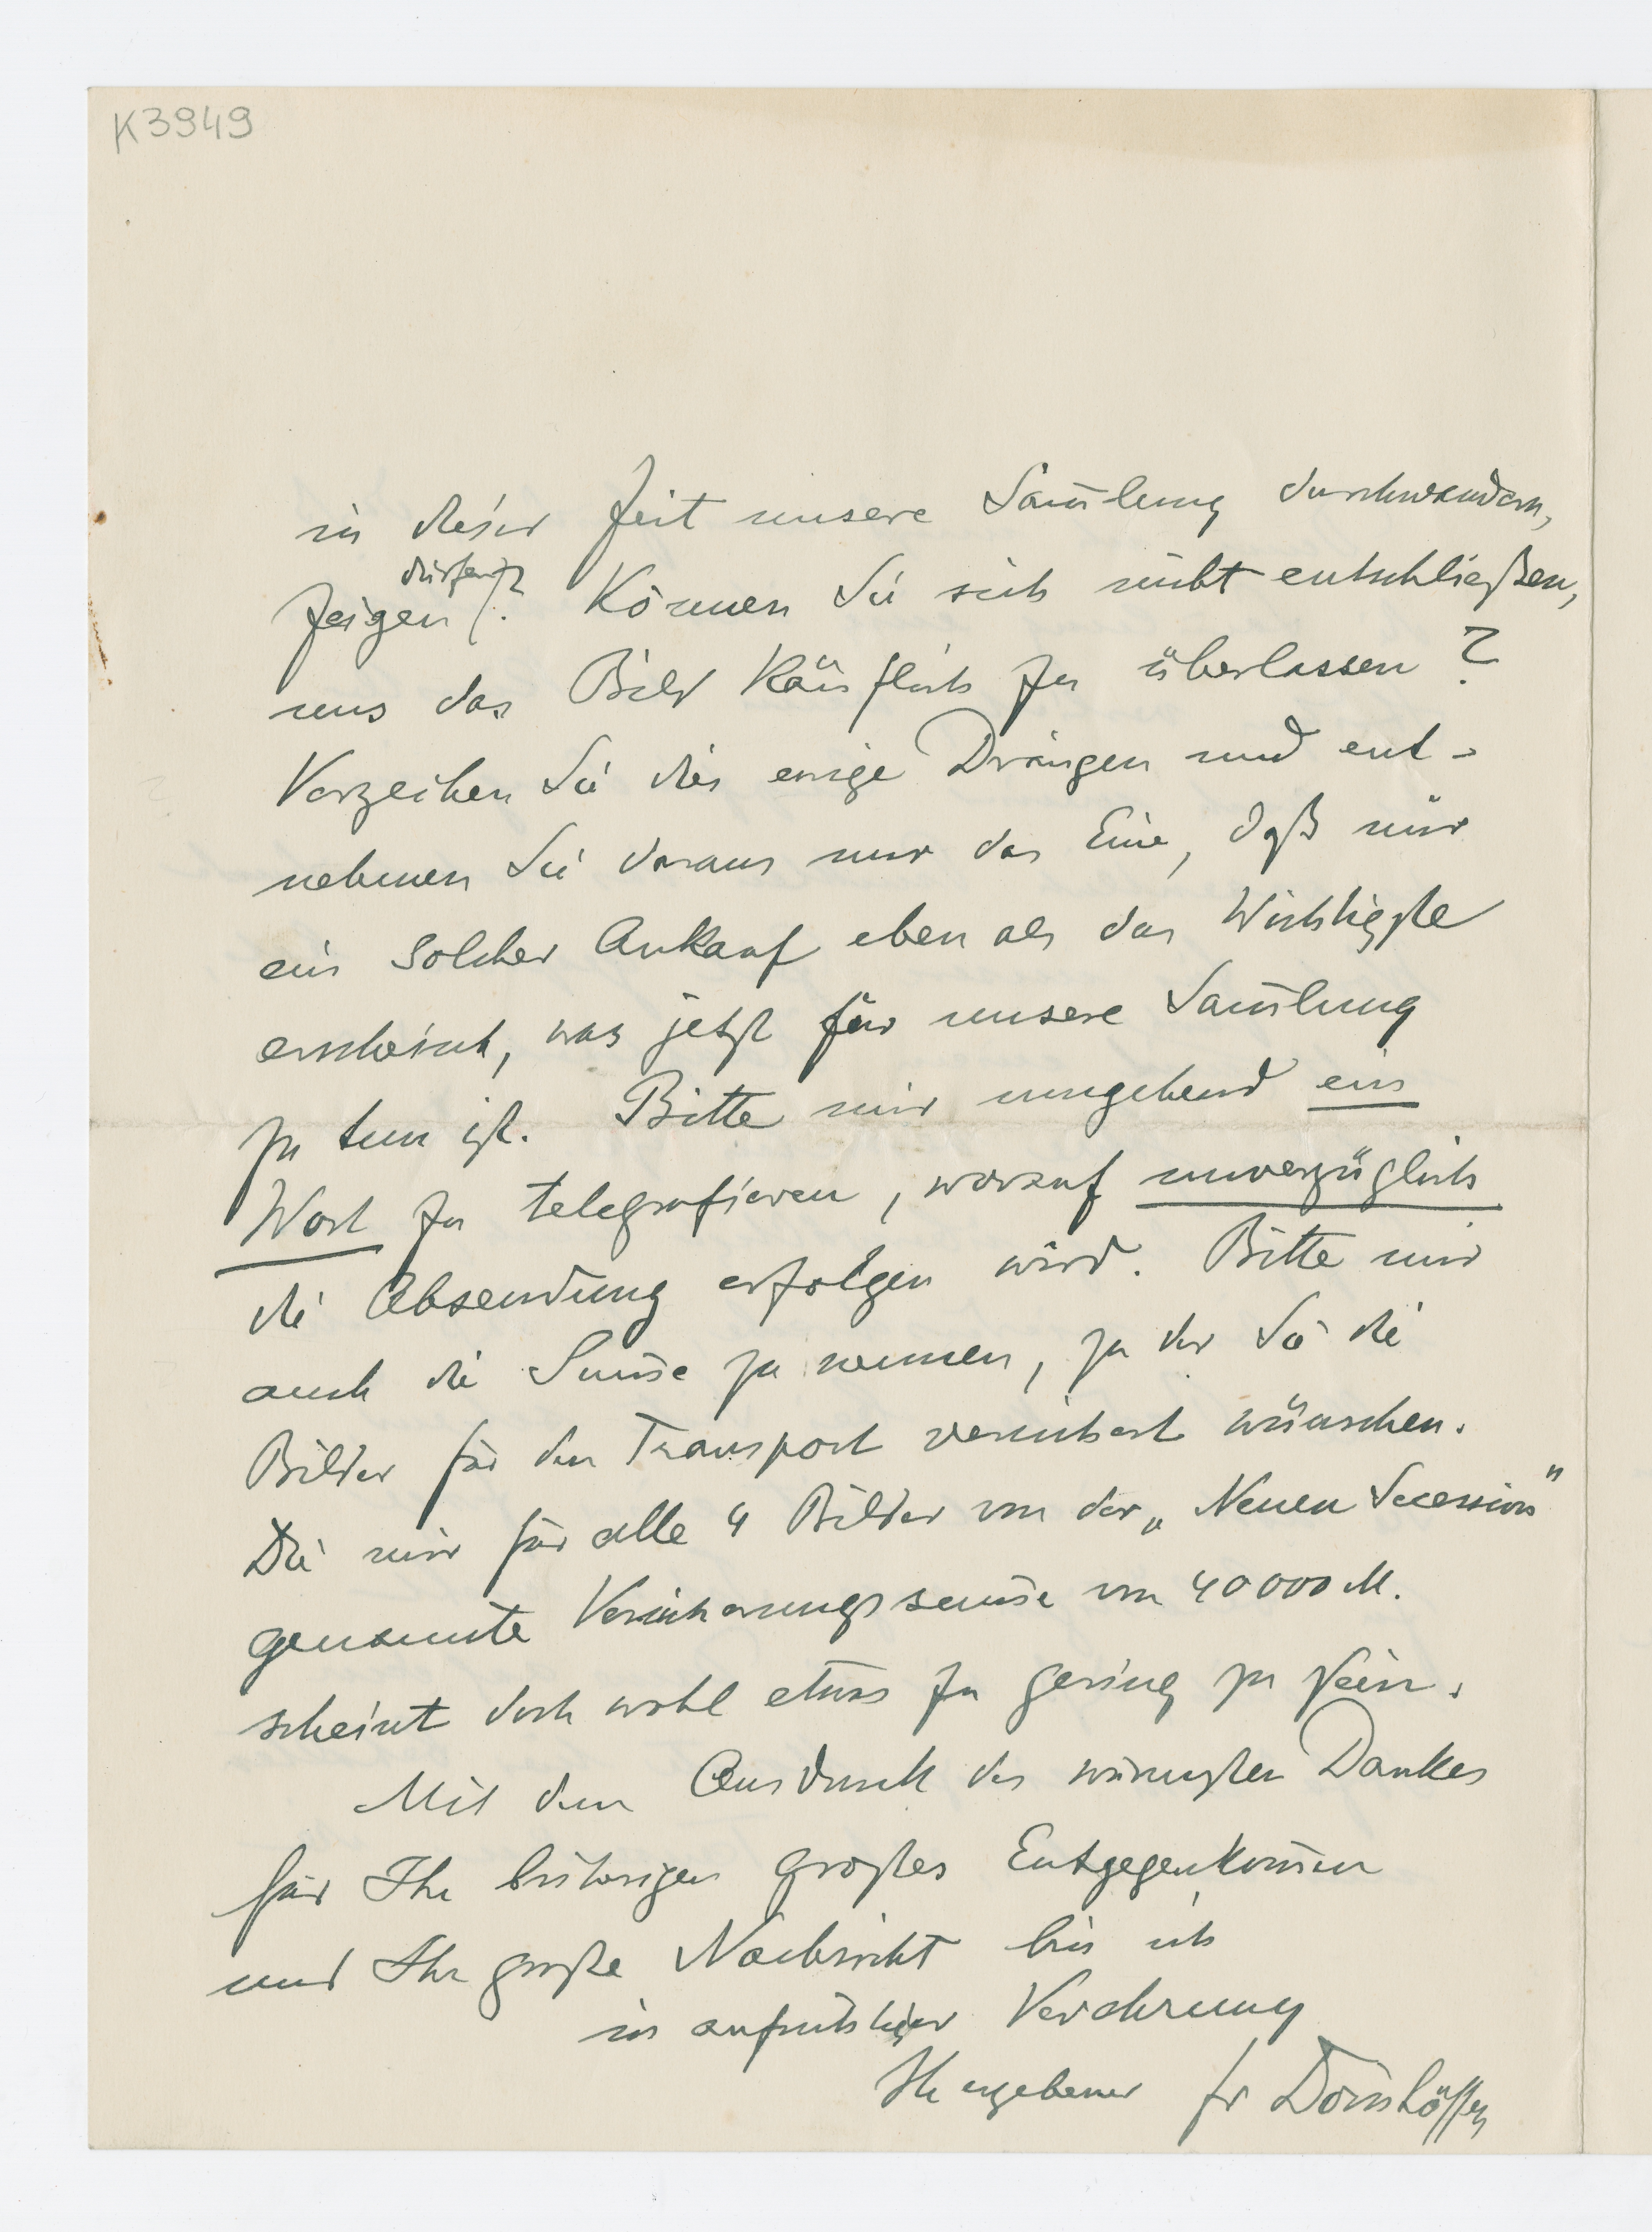 K3949
in dieser Zeit unsere Sam̅lung durchwandern,
dürfen?
zeigen. Können Sie sich nicht entschließen,
uns das Bild käuflich zu überlassen?
Verzeihen Sie dies ewige Drängen und ent-
nehmen Sie daraus nur das Eine, daß mir
ein solcher Ankauf eben als das Wichtigste
erscheint, was jetzt für unsere Sam̅lung
zu tun ist. Bitte mir umgehend ein
Wort zu telegrafieren, worauf unverzüglich
die Absendung erfolgen wird. Bitte mir
auch die Sum̅e zu nennen, zu der Sie die
Bilder für den Transport versichert wünschen.
Die mir für alle 4 Bilder von der „Neuen Secession"
genannte Versicherungssum̅e von 40000 M.
scheint doch wohl etwas zu gering zu sein.
Mit dem Ausdruck des wärmsten Dankes
für Ihr bisheriges großes Entgegenkom̅en
und Ihre große Nachsicht bin ich
in aufrichtiger Verehrung
Ihr ergebener Fr Dörnhöffer